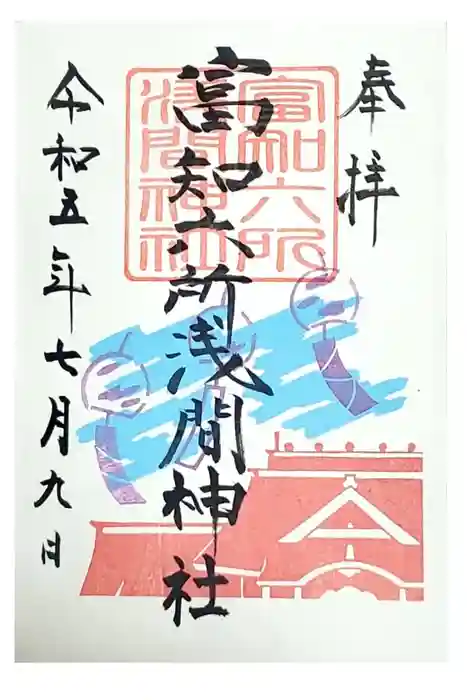 奉拝
富知六所
浅間神社
富知六所浅間神社
令和五年七月九日